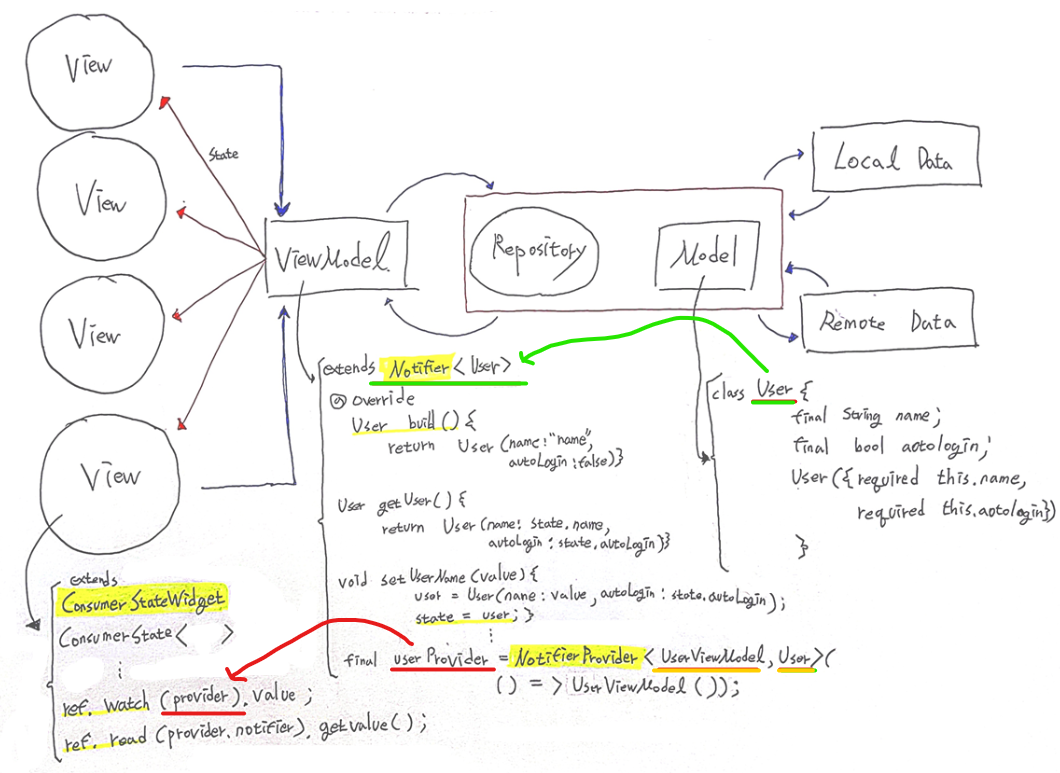 View
State
View
View
View
ViewModel
Repository
Model
Local Data
Remote Data
extends Notifier<User>
@ override
User build() {
return User(name:"name",
autoLogin:false)}
User getUser() {
return User(name: state.name,
autoLogin: state.autoLogin)}
void setUserName(value) {
user = User(name: value, autoLogin: state.autoLogin);
state = user; }
final userProvider = NotifierProvider<UserViewModel, User>(
() => UserViewModel());
class User {
final String name;
final bool aotologin;
User({required this.name,
required this.aotologin})
}
extends
ConsumerStateWidget
ConsumerState< >
ref. watch (provider).value;
ref. read (provider.notifier).getvalue();